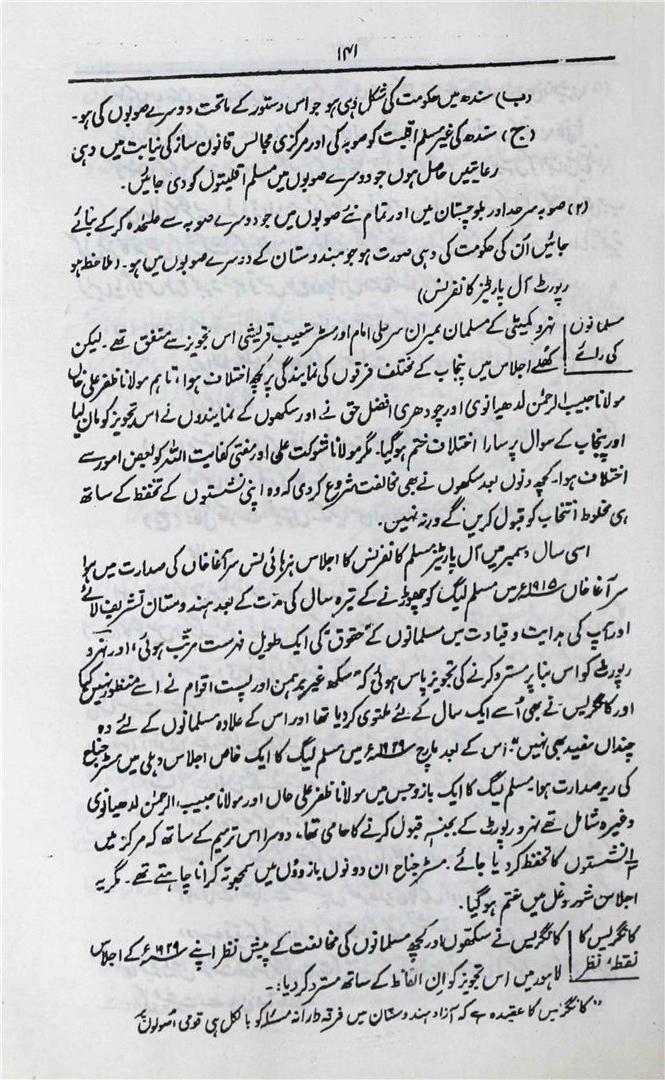 ۱۴۱
(ب) سندھ میں حکومت کی شکل وہی ہو جو اس دستور کے ماتحت دوسرے صوبوں کی ہو۔
(ج) سندھ کی غیر مسلم اقلیت کو صوبہ کی اور مرکزی مجالس قانون ساز کی نیابت میں وہی
رعایتیں حاصل ہوں جو دوسرے صوبوں میں مسلم اقلیتوں کو دی جائیں۔
(۲) صوبہ سرحد اور بلوچستان میں اور تمام نئے صوبوں میں جو دوسرے صوبہ سے علٰحدہ کر کے بنائے
جائیں اُن کی حکومت کی وہی صورت ہو جو ہندوستان کے دوسرے صوبوں میں ہو۔ (ملاحظہ ہو
رپورٹ آل پارٹیز کانفرنس)
مسلمانوں کی رائے
نہرو کمیٹی کے مسلمان ممبران سر علی امام اور مسٹر شعیب قریشی اس تجویز سے متفق تھے۔ لیکن
کُھلے اجلاس میں پنجاب کے مختلف فرقوں کی نمایندگی پر کچھ اختلاف ہوا، تاہم مولانا ظفر علی خاں
مولانا حبیب الرحمٰن لدھیانوی اور چودھری افضل حق نے اور سکھوں کے نمایندوں نے اس تجویز کو مان لیا
اور پنجاب کے سوال پر سارا اختلاف ختم ہو گیا۔ مگر مولانا شوکت علی اور مفتی کفایت اللہ کو بعض امور سے
اختلاف ہوا۔ کچھ دنوں بعد سکھوں نے بھی مخالفت شروع کر دی کہ وہ اپنی نشستوں کے تحفظ کے ساتھ
ہی مخلوط انتخاب کو قبول کریں گے ورنہ نہیں۔
اسی سال دسمبر میں آل پارٹیز مسلم کانفرنس کا اجلاس ہز ہائی نس سر آغا خاں کی صدارت میں ہوا
سر آغا خاں ۱۹۱۵ء میں مسلم لیگ کو چھوڑنے کے تیرہ سال کی مدت کے بعد ہندوستان تشریف لائے
اور آپ کی ہدایت و قیادت میں مسلمانوں کے "حقوق" کی ایک طویل فہرست مرتب ہوئی، اور نہرو
رپورٹ کو اس بنا پر مسترد کرنے کی تجویز پاس ہوئی کہ "سکھ غیر برہمن اور پست اقوام نے اسے منظور نہیں کیا
اور کانگریس نے بھی اُسے ایک سال کے لئے ملتوی کر دیا تھا اور اس کے علاوہ مسلمانوں کے لئے وہ
چنداں مفید بھی نہیں"۔ اس کے بعد مارچ ۱۹۲۹ء میں مسلم لیگ کا ایک خاص اجلاس دہلی میں مسٹر جناح
کی زیر صدارت ہوا۔ مسلم لیگ کا ایک بازو جس میں مولانا ظفر علی خاں اور مولانا حبیب الرحمٰن لدھیانوی
وغیرہ شامل تھے نہرو رپورٹ کے بجنسہٖ قبول کرنے کا حامی تھا، دوسرا اس ترمیم کے ساتھ کہ مرکز میں
۱/۳ نشستوں کا تحفظ کر دیا جائے۔ مسٹر جناح ان دونوں بازوؤں میں سمجھوتہ کرانا چاہتے تھے۔ مگر یہ
اجلاس شور و غل میں ختم ہو گیا۔
کانگریس کا نقطۂ نظر
کانگریس نے سکھوں اور کچھ مسلمانوں کی مخالفت کے پیش نظر اپنے ۱۹۲۹ء کے اجلاس
لاہور میں اس تجویز کو ان الفاظ کے ساتھ مسترد کر دیا:۔
"کانگریس کا عقیدہ ہے کہ آزاد ہندوستان میں فرقہ دارانہ مسئلہ کو بالکل ہی قومی اُصولوں